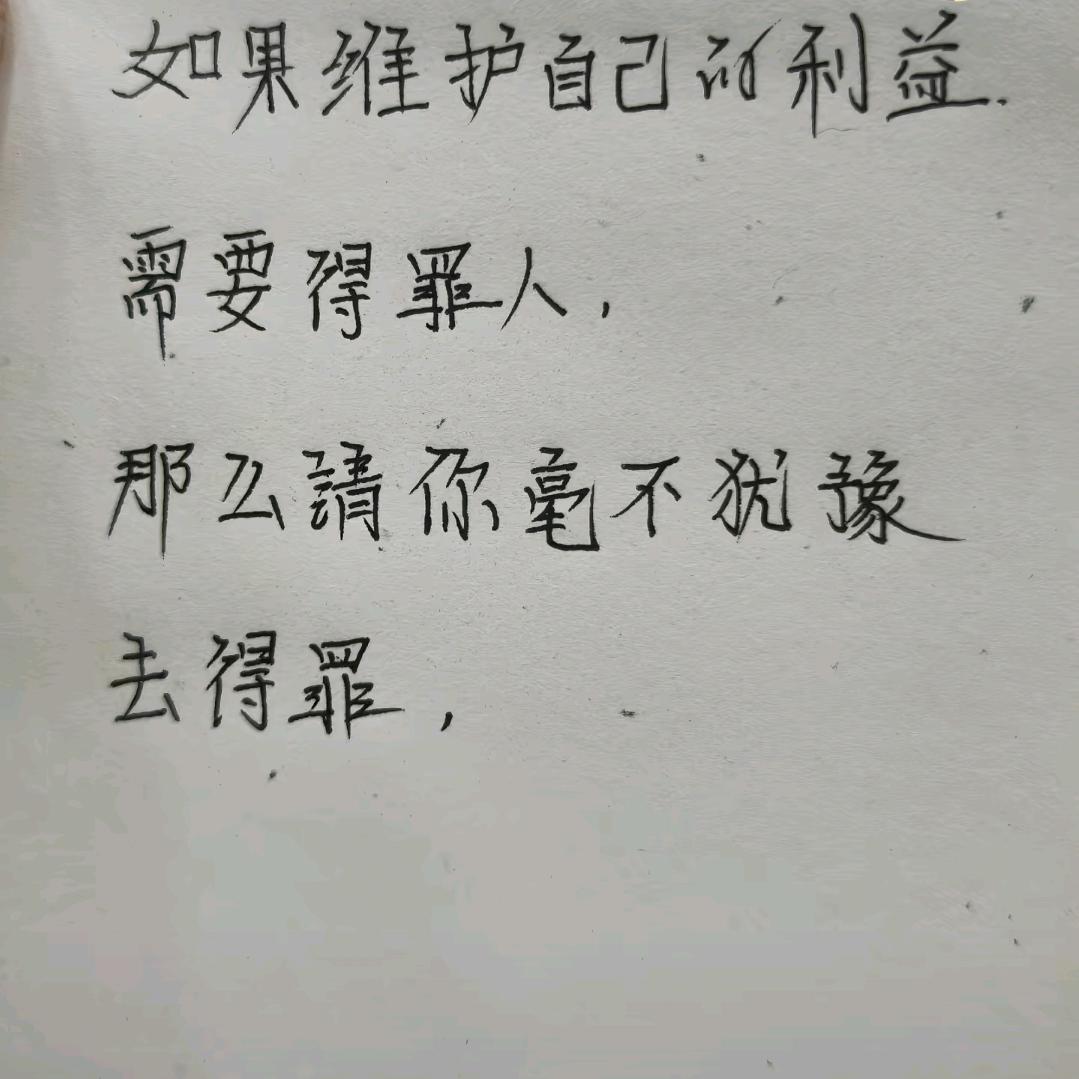 如果维护自己的利益.
需要得罪人,
那么請你毫不犹豫
去得罪,